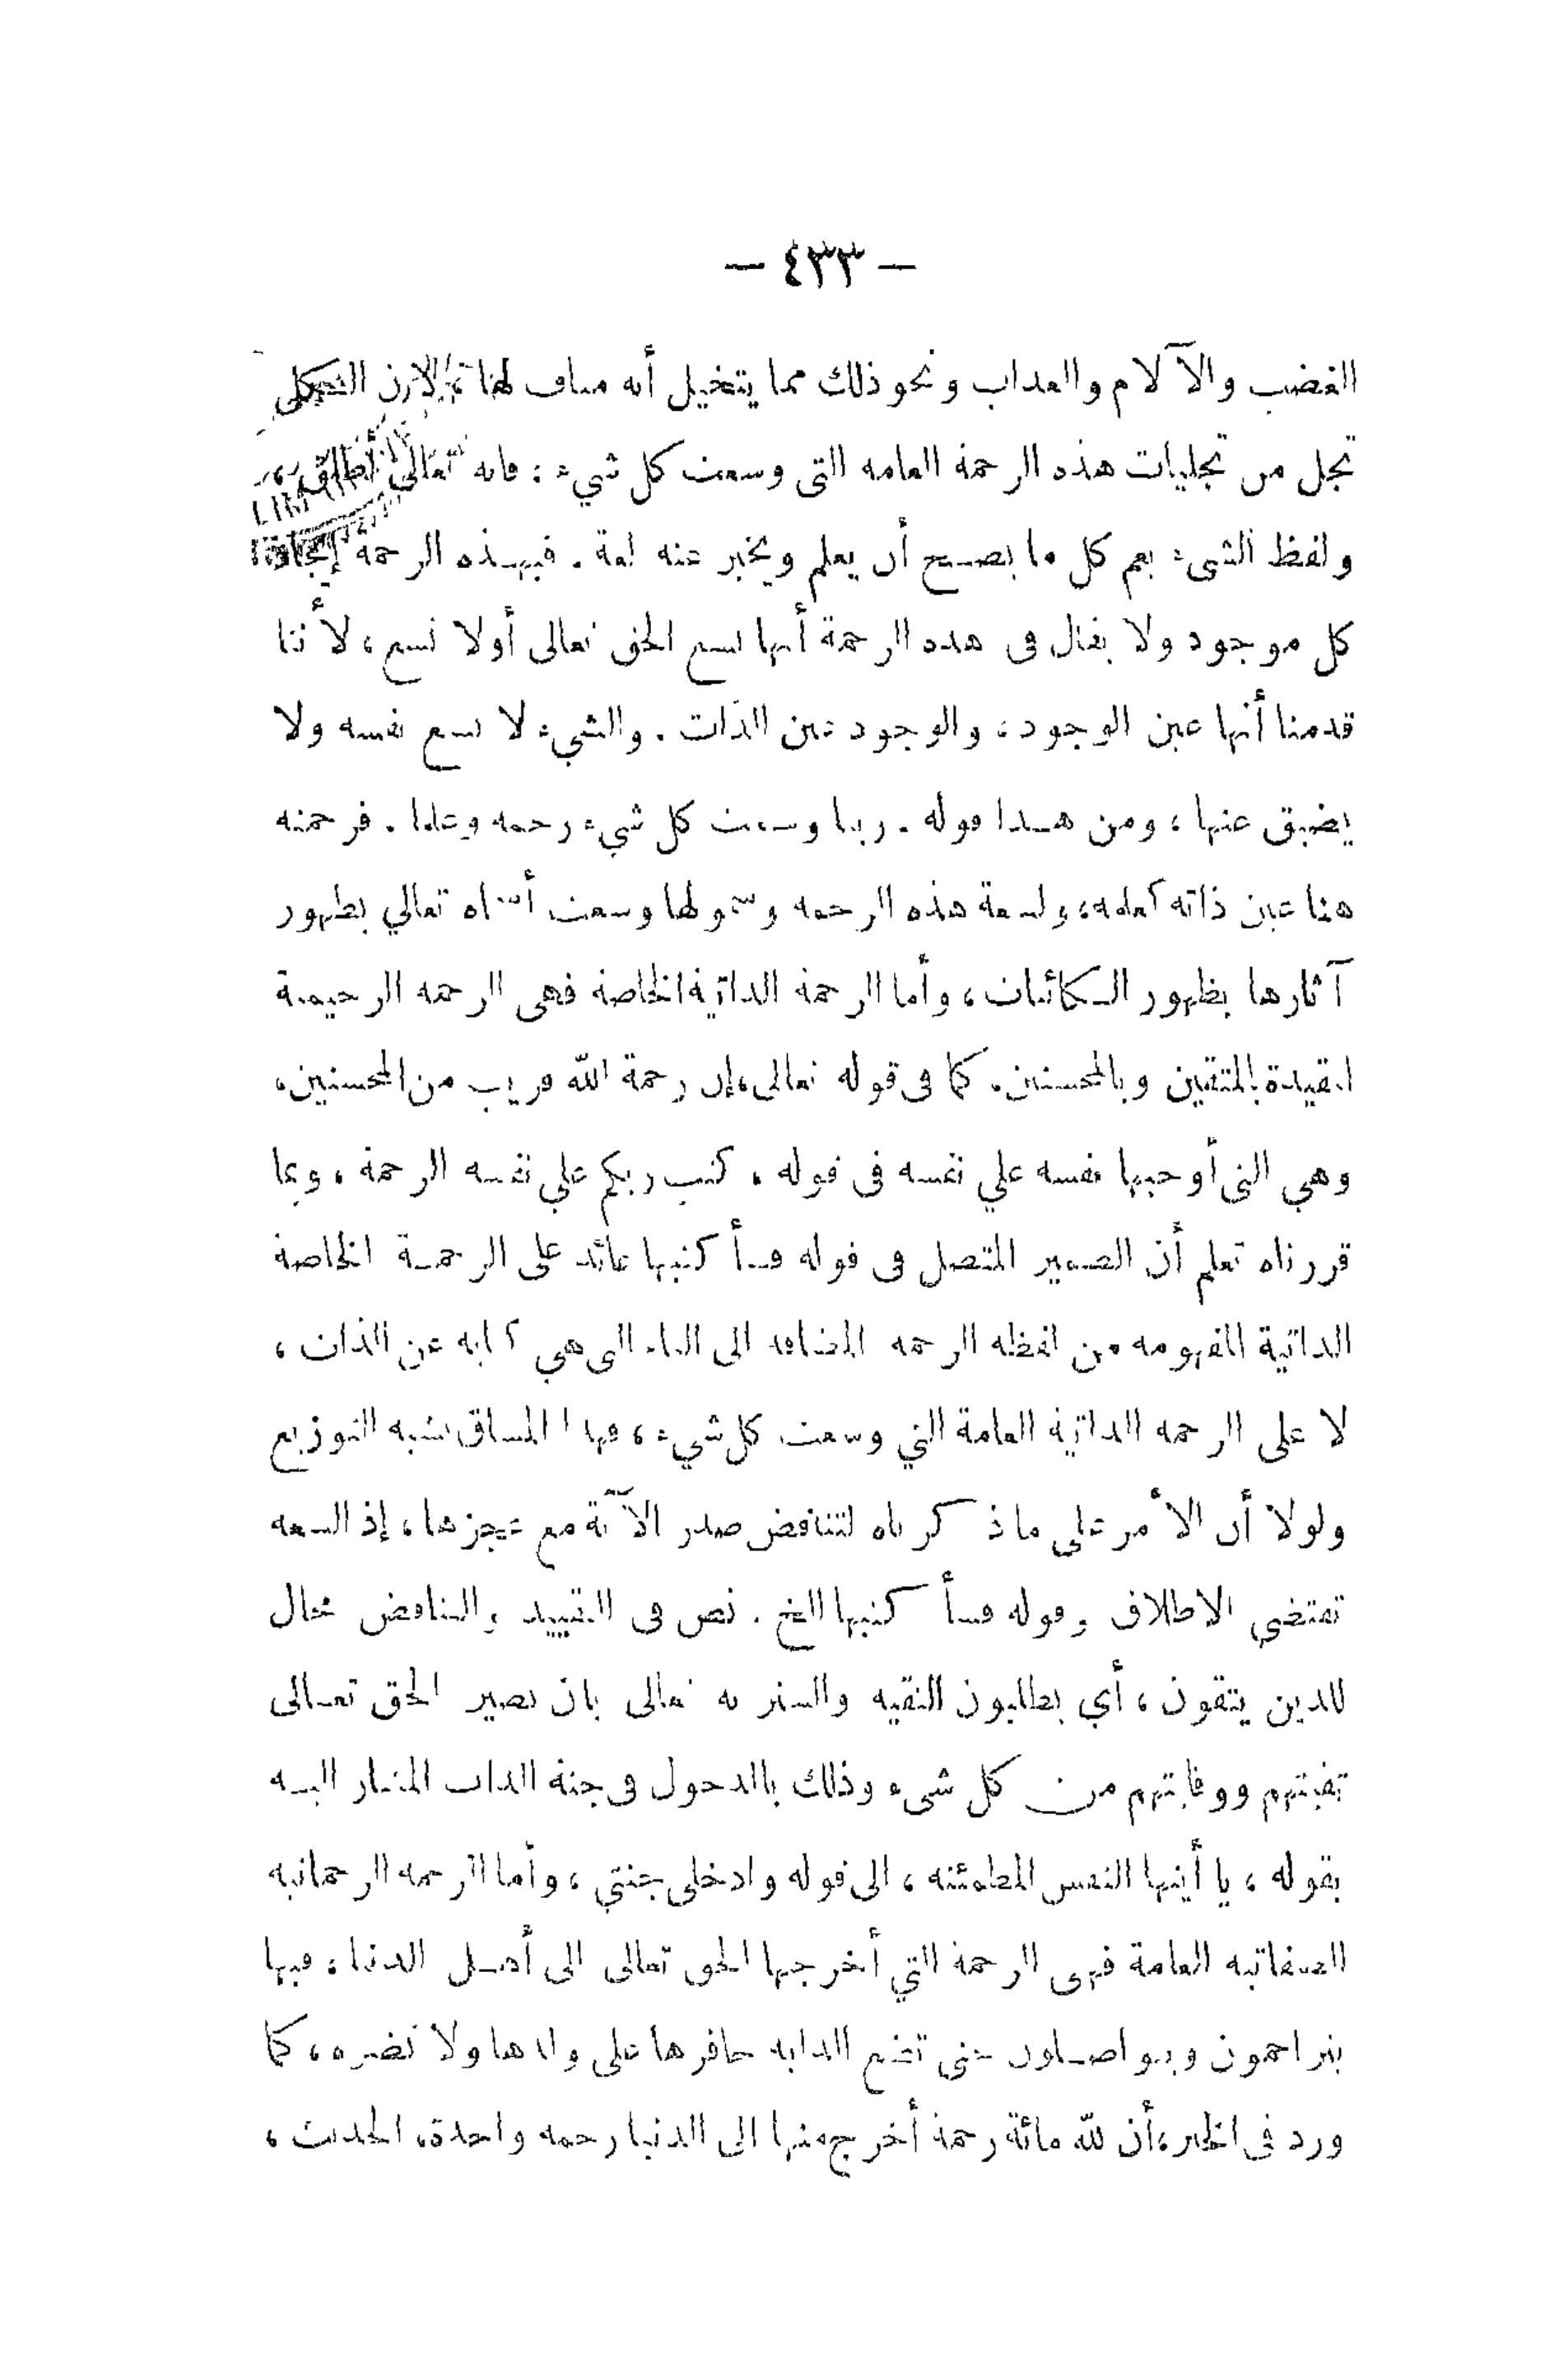 — ٤٣٣ —
الغضب والآلام والعذاب ونحو ذلك مما يتخيل أنه مناف لها ، لان الكل
تجل من تجليات هذه الرحمة العامة التى وسعت كل شيء : فانه تعالى أطلق ،
ولفظ الشىء يعم كل ما يصح أن يعلم ويخبر عنه لغة . فبهذه الرحمة إيجاد
كل موجود ولا يقال فى هذه الرحمة أنها تسع الحق تعالى أولا تسع ، لأننا
قدمنا أنها عين الوجود ، والوجود عين الذات . والشيء لا يسع نفسه ولا
يضيق عنها ، ومن هذا قوله . ربنا وسعت كل شيء رحمة وعلما . فرحمته
هنا عين ذاته كعلمه ، ولسعة هذه الرحمة وشمولها وسعت أسماءه تعالي بظهور
آثارها بظهور الكائنات ، وأما الرحمة الذاتية الخاصة فهى الرحمة الرحيمية
المقيدة بالمتقين وبالمحسنين . كما فى قوله تعالى ، إن رحمة الله قريب من المحسنين ،
وهي التى أوجبها نفسه علي نفسه فى قوله ، كتب ربكم علي نفسه الرحمة ، وبما
قررناه تعلم أن الضمير المتصل فى قوله فسأكتبها عائد على الرحمة الخاصة
الذاتية المفهومه من لفظه الرحمه المضافه الى الياء التى هي كناية عن الذات ،
لا على الرحمة الذاتية العامة التي وسعت كل شيء ، فهذا المساق يشبه التوزيع
ولولا أن الأمر على ماذكرناه لتناقض صدر الآية مع عجزها ، إذ السعه
تقتضي الاطلاق وقوله فسأكتبها الخ . نص فى التقييد والتناقض محال
للذين يتقون ، أي يطلبون التقيه والستر به تعالى بان يصير الحق تعالى
تقيتهم ووقايتهم من كل شىء وذلك بالدخول فى جنة الذات المشار اليه
بقوله ، يا أيتها النفس المطمئنه ، الى قوله وادخلى جنتي ، وأما الرحمه الرحمانيه
الصفاتيه العامة فهى الرحمة التي أخرجها الحق تعالى الى أهل الدنيا ، فبها
يتراحمون ويتواصلون حتى تضع الدابه حافرها على ولدها ولا تضره ، كما
ورد فى الخبر ، أن لله مائة رحمة أخرج منها الى الدنيا رحمه واحدة ، الحديث ،